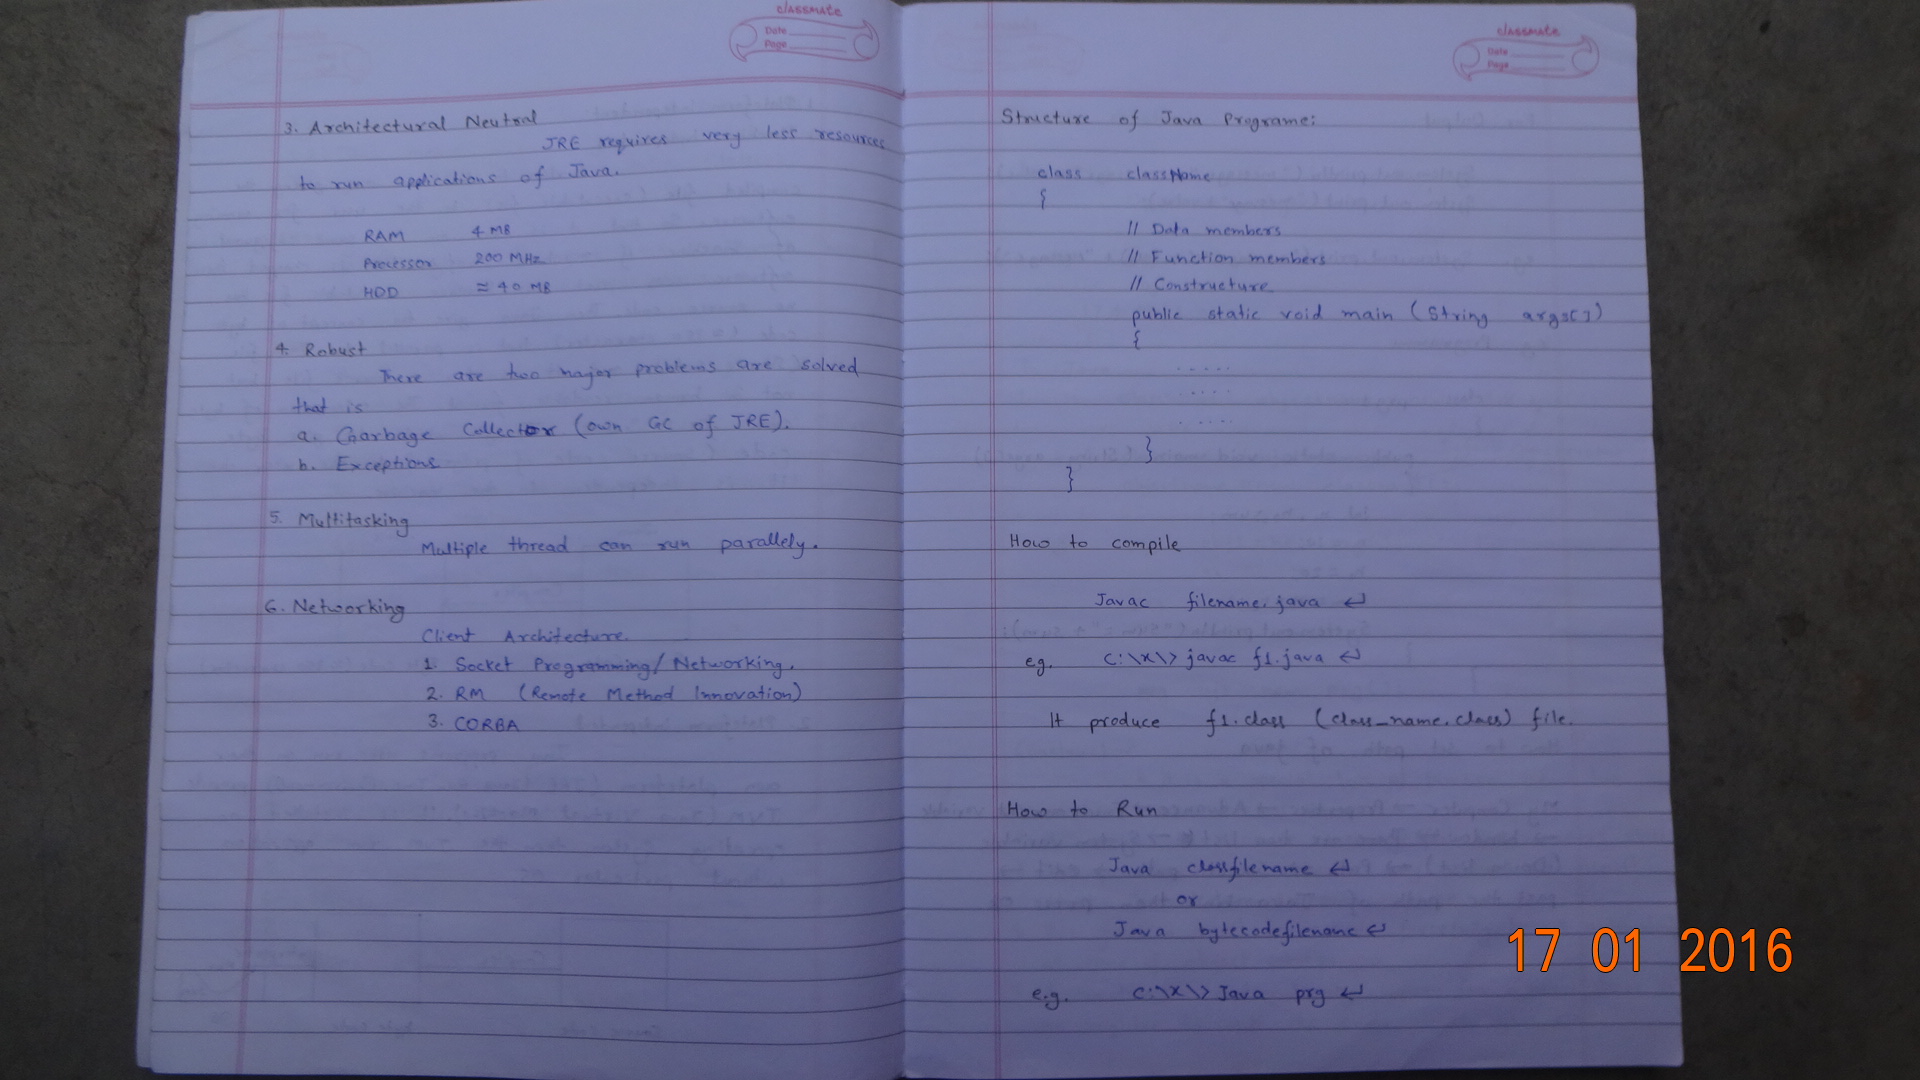 classmate
Date
Page
3. Architectural Neutral
JRE requires very less resources
to run applications of Java.
RAM 4 MB
Processor 200 MHz
HDD ≈ 40 MB
4. Robust
There are two major problems are solved
that is
a. Garbage Collector (own GC of JRE).
b. Exceptions
5. Multitasking
Multiple thread can run parallely.
6. Networking
Client Architecture.
1. Socket Programming/Networking.
2. RM (Remote Method Innovation)
3. CORBA
classmate
Date
Page
Structure of Java Programe:
class className
{
// Data members
// Function members
// Constructure
public static void main (String args[])
{
.....
....
.....
}
}
How to compile
Javac filename.java ↵
eg. C:\x\> javac f1.java ↵
It produce f1.class (class_name.class) file.
How to Run
Java classfilename ↵
or
Java bytecodefilename ↵
e.g. C:\x\> Java prg ↵
17 01 2016